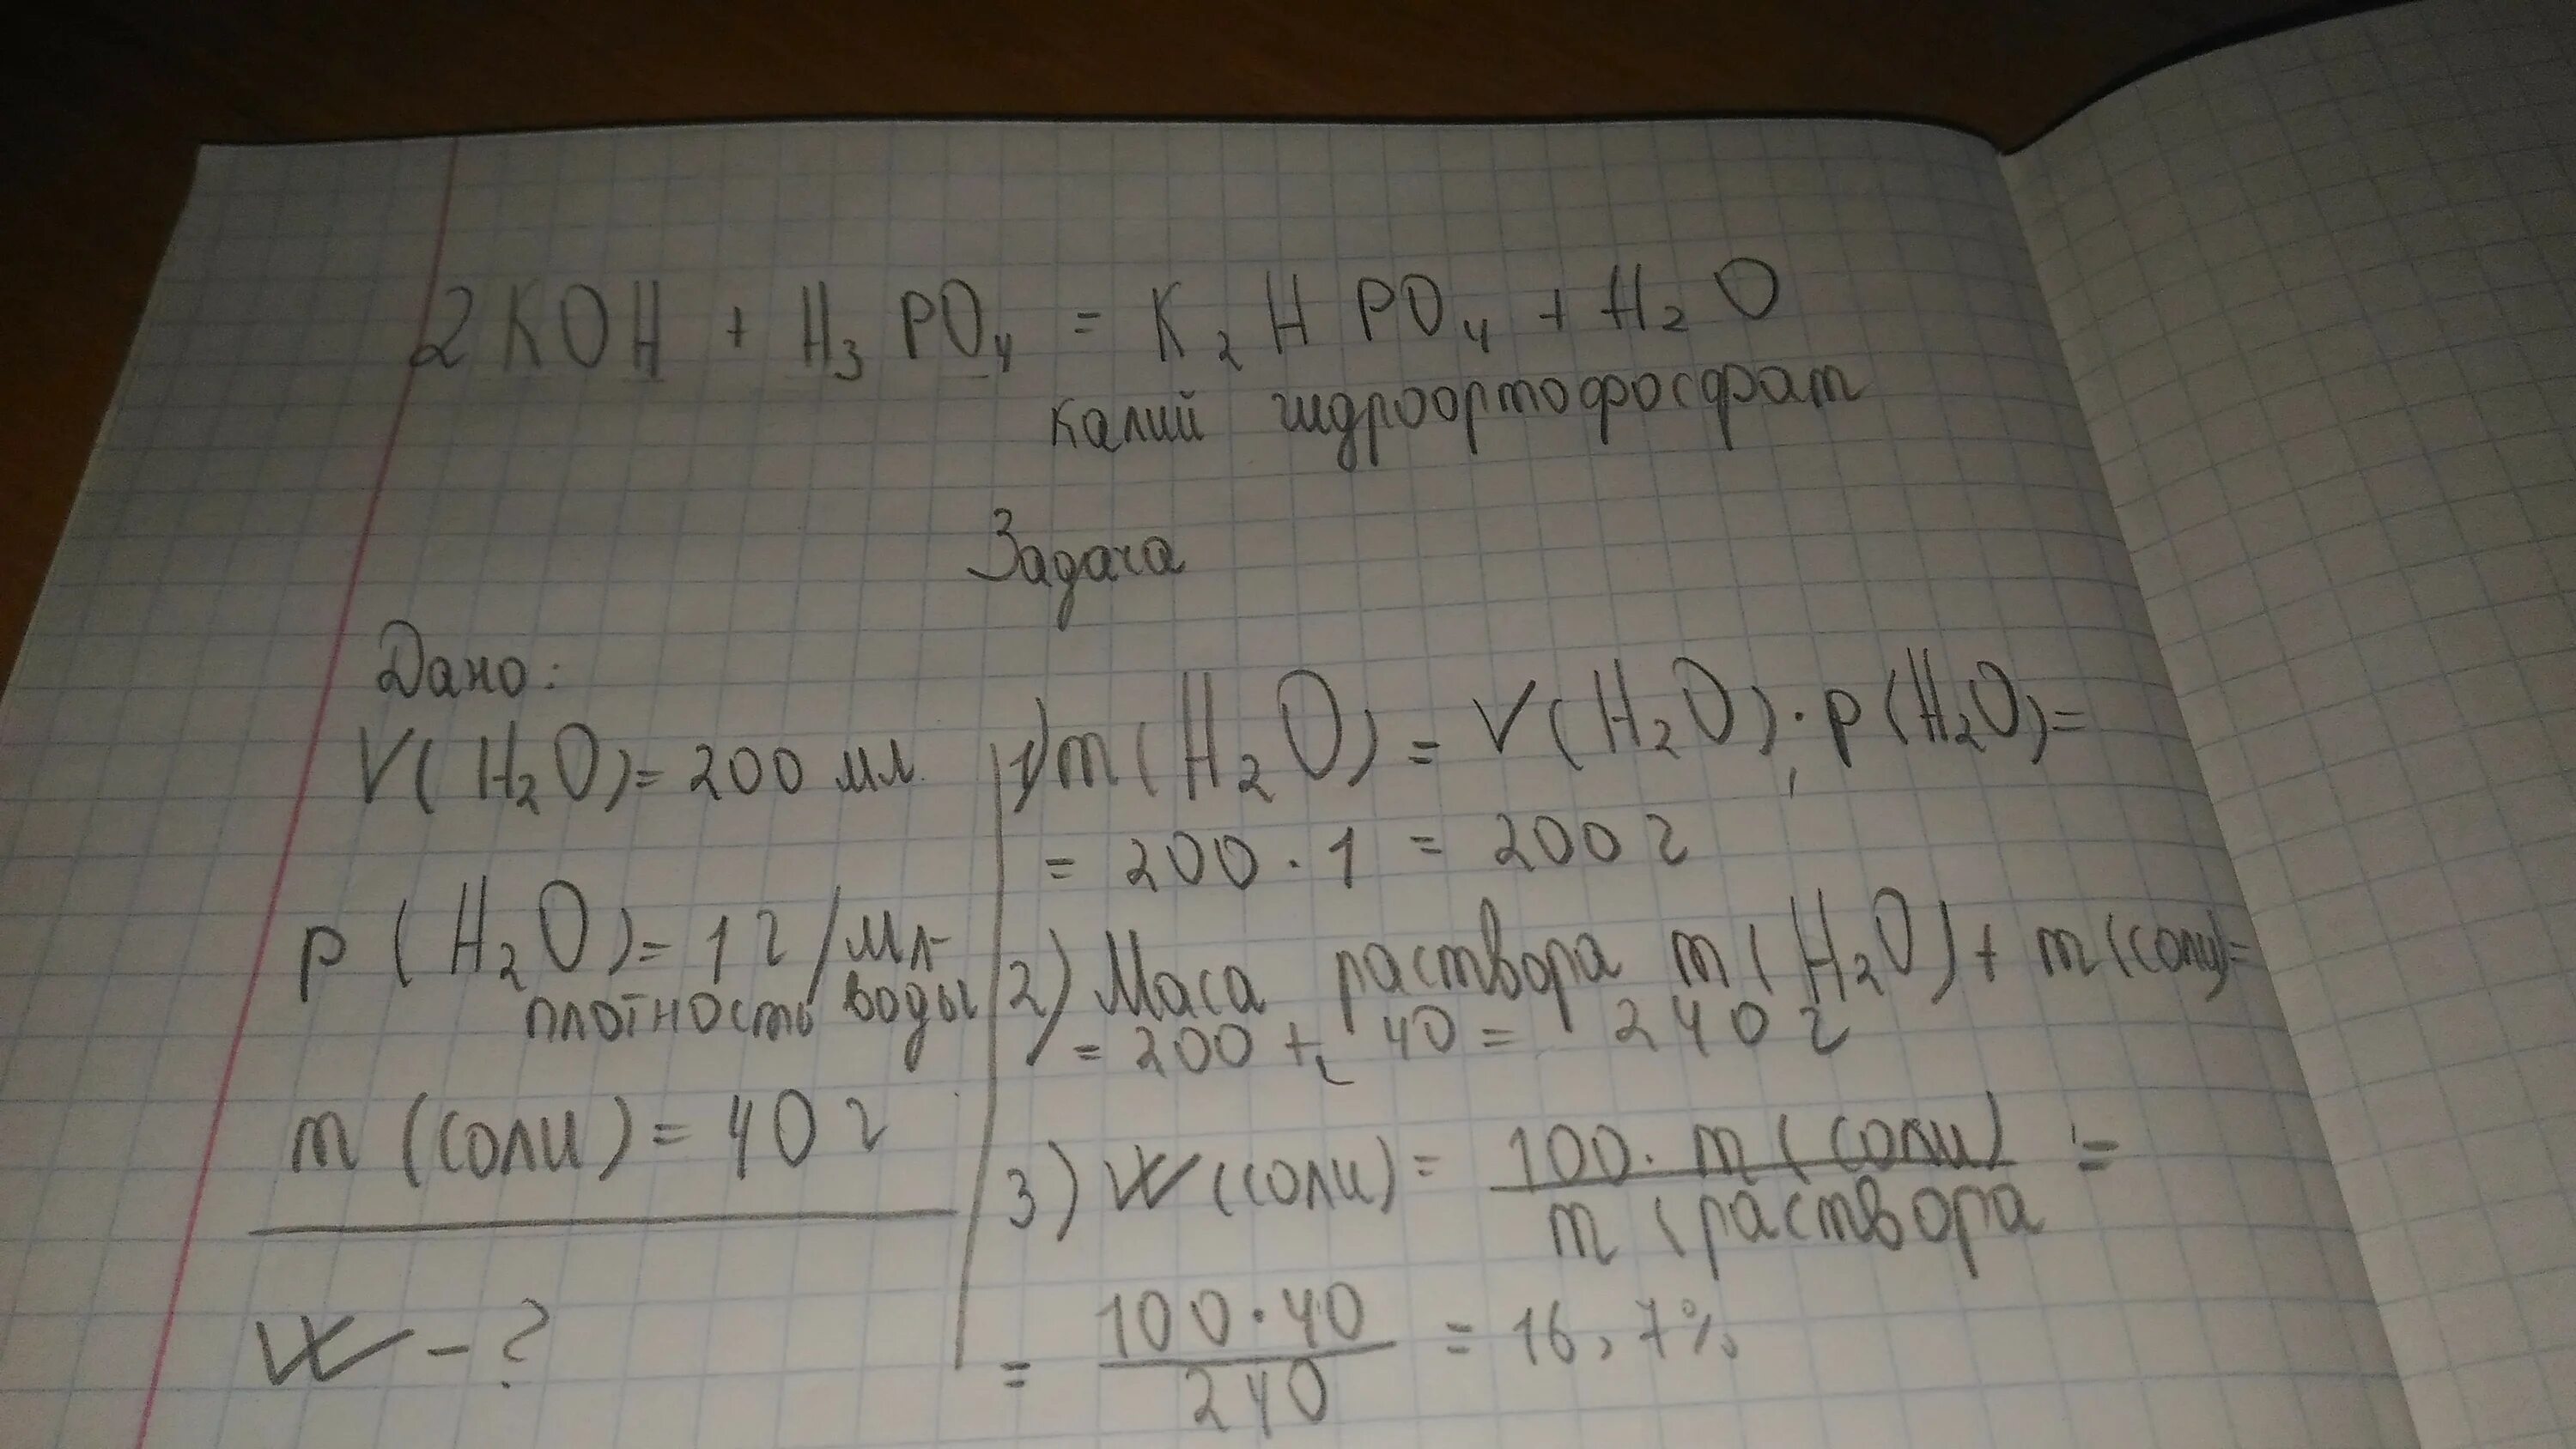 2KOH + H₃PO₄ = K₂HPO₄ + H₂O
калий гидроортофосфат
Задача
Дано:
V(H₂O)= 200 мл
p(H₂O)= 1 г/мл
плотность воды
m (соли) = 40 г
W - ?
1) m(H₂O) = V(H₂O) · p(H₂O)=
= 200 · 1 = 200 г
2) Маса раствора m(H₂O) + m(соли)=
= 200 + 40 = 240 г
3) W (соли) = 100 · m (соли) / m (раствора =
= 100 · 40 / 240 = 16,7%